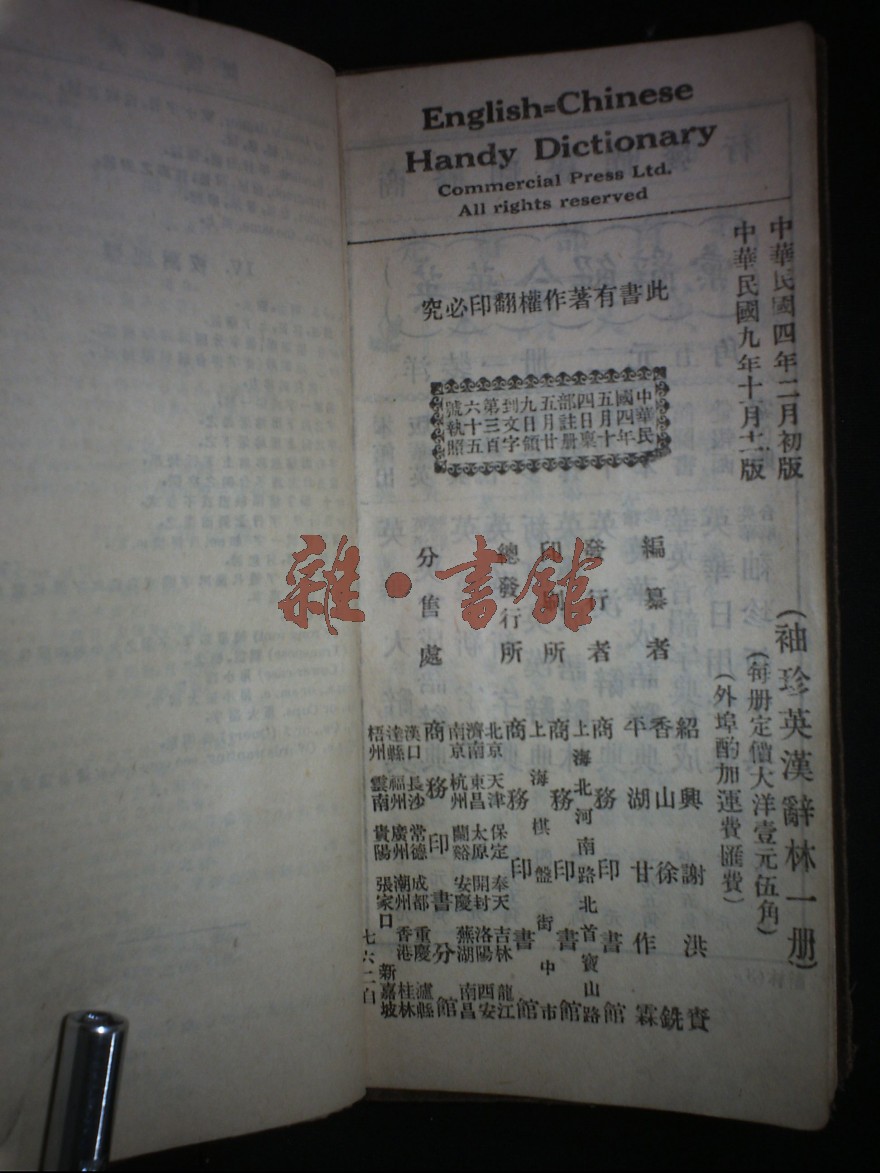 English=Chinese
Handy Dictionary
Commercial Press Ltd.
All rights reserved
中華民國四年二月初版
中華民國九年十月十二版
此書有著作權翻印必究
中華民
國四年
五月十
四日稟
部註册
五月廿
九日領
到文字
第三百
六十五
號執照
(袖珍英漢辭林一册)
(每册定價大洋壹元伍角)
(外埠酌加運費匯費)
編纂者
紹興謝洪賚
香山徐銑
平湖甘作霖
發行者
商務印書館
印刷所
上海北河南路北首寶山路
商務印書館
總發行所
上海棋盤街中市
商務印書館
分售處
北京 天津 保定 奉天 吉林 龍江
濟南 東昌 太原 開封 洛陽 西安
南京 杭州 蘭谿 安慶 蕪湖 南昌
商務印書分館
漢口 長沙 常德 成都 重慶 瀘縣
達縣 福州 廣州 潮州 香港 桂林
梧州 雲南 貴陽 張家口 新嘉坡
雜·書館
IV.